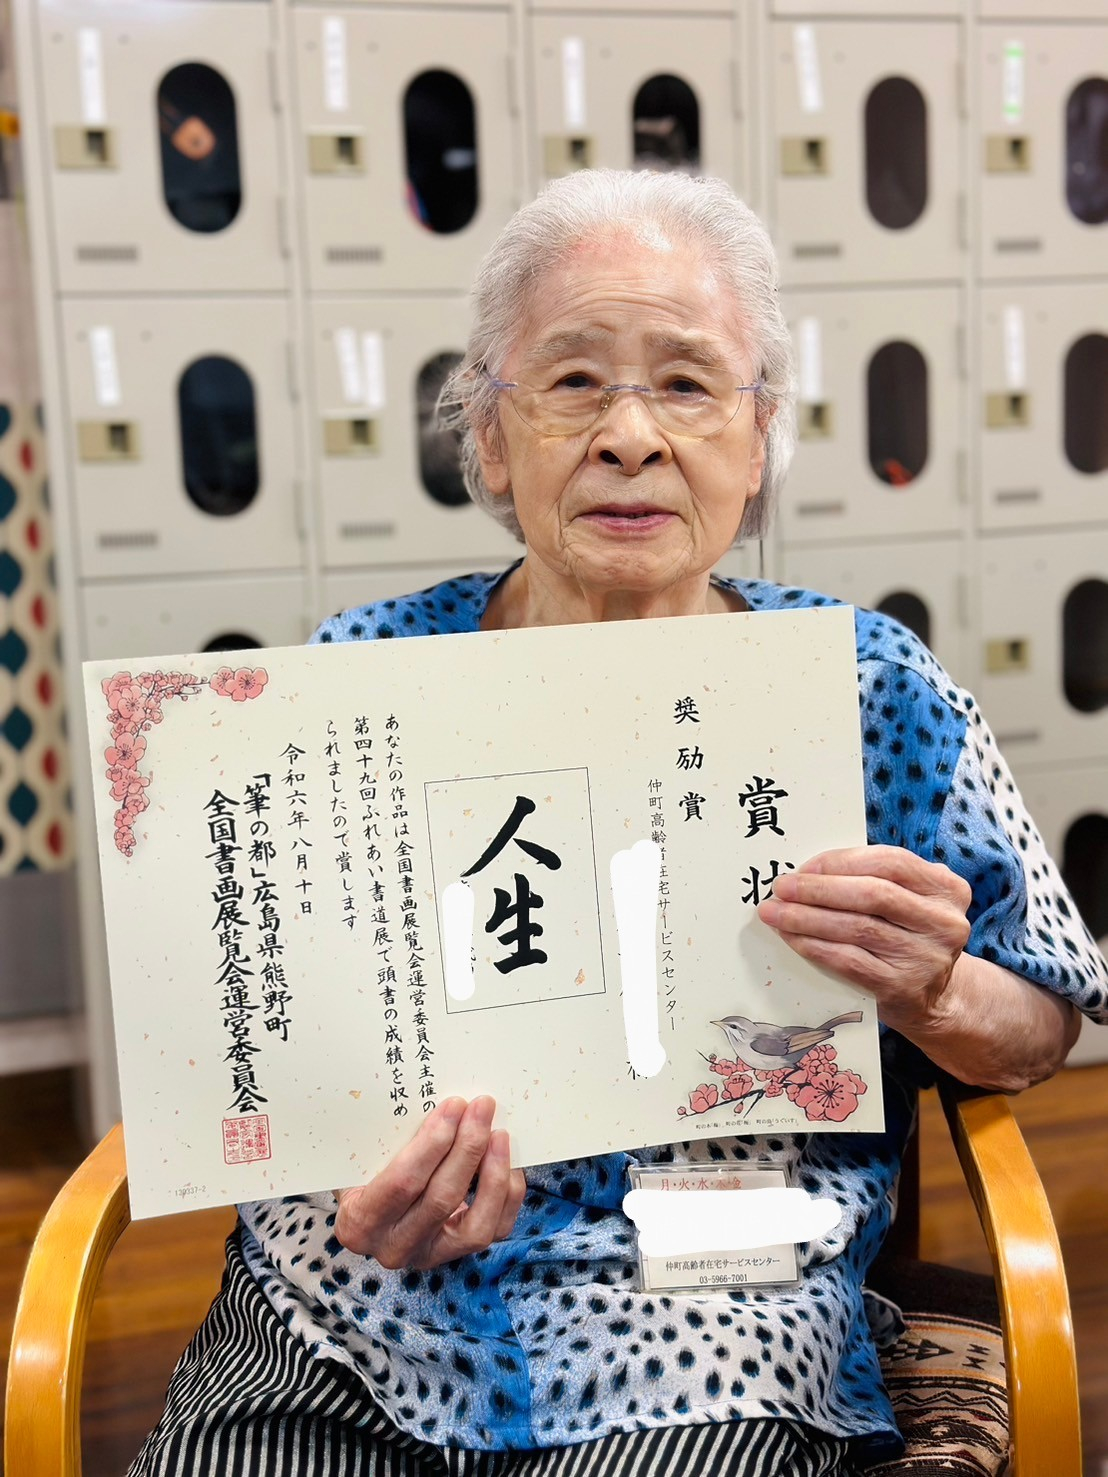 賞状
奨励賞
仲町高齢者在宅サービスセンター
様
人生
あなたの作品は全国書画展覧会運営委員会主催の
第四十九回ふれあい書道展で頭書の成績を収め
られましたので賞します
令和六年八月十日
「筆の都」広島県熊野町
全国書画展覧会運営委員会
120337-2
町の木「梅」 町の花「梅」 町の鳥「うぐいす」
月・火・水・木・金
仲町高齢者在宅サービスセンター
03-5966-7001